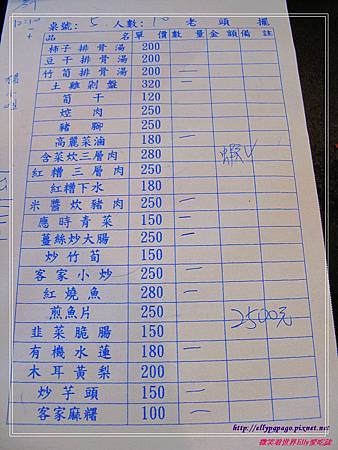 桌號: 5 人數: 10 老頭擺
品名 單價 數量 金額 備註
柿子排骨湯 200
豆干排骨湯 200
竹筍排骨湯 200 一
土雞剁盤 320 一
筍干 120
焢肉 250
豬腳 250
高麗菜油 180 一
含菜炊三層肉 280 蝦
紅糟三層肉 250
紅糟下水 180
米醬炊豬肉 250 一
應時青菜 150 一
薑絲炒大腸 250 一
炒竹筍 150
客家小炒 250 一
紅燒魚 280 一
煎魚片 250
韭菜脆腸 150 2500元
有機水蓮 180 一
木耳黃梨 200
炒芋頭 150 一
客家麻糬 100 一
http://ellypapago.pixnet.net
微笑看世界Elly愛吃誌